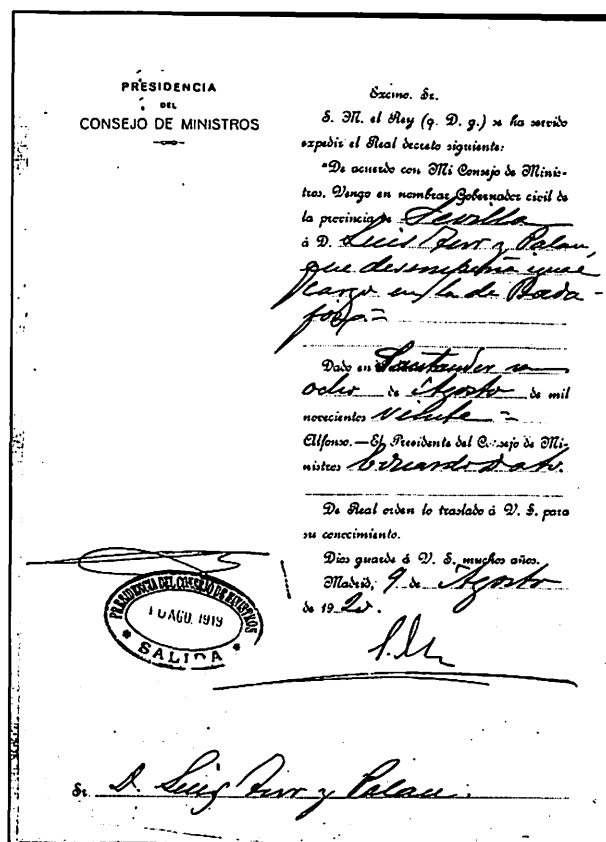 PRESIDENCIA
DEL
CONSEJO DE MINISTROS
Excmo. Sr.
S. M. el Rey (q. D. g.) se ha servido
expedir el Real decreto siguiente:
"De acuerdo con Mi Consejo de Minis-
tros, Vengo en nombrar Gobernador civil de
la provincia de Sevilla
á D. Luis y Palau,
que desempeña igual
cargo en la de Bada-
joz.=
Dado en Santander a
ocho de Agosto de mil
novecientos veinte=
Alfonso.—El Presidente del Consejo de Mi-
nistros Eduardo Dato.
De Real orden lo traslado á V. S. para
su conocimiento.
Dios guarde á V. S. muchos años.
Madrid, 9 de Agosto
de 1920.
PRESIDENCIA DEL CONSEJO DE MINISTROS
10 AGO. 1919
SALIDA
Sr. D. Luis y Palau.